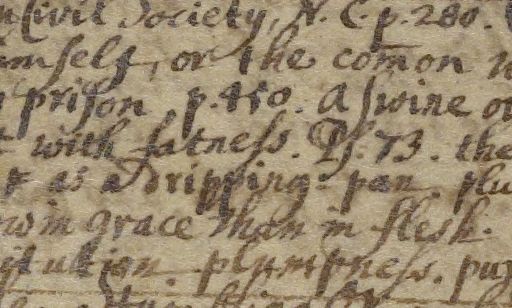 Civil Society, N. C. p. 280.
himself, or the comōn
prison p. 450. A swine
with fatness. Ps. 73. the
as a dripping-pan.
in grace than in flesh.
plumpness.